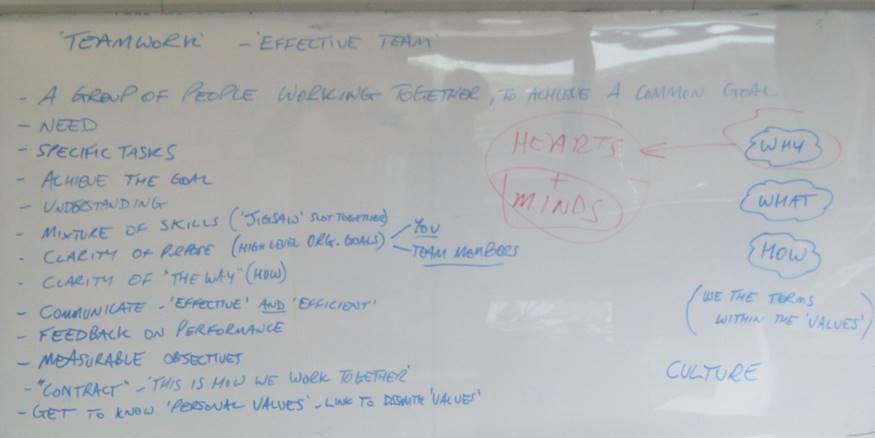 'TEAMWORK' - 'EFFECTIVE TEAM'
- A GROUP OF PEOPLE WORKING TOGETHER, TO ACHIEVE A COMMON GOAL
- NEED
- SPECIFIC TASKS
- ACHIEVE THE GOAL
- UNDERSTANDING
- MIXTURE OF SKILLS ('JIGSAW' SLOT TOGETHER)
- CLARITY OF PURPOSE (HIGH LEVEL ORG. GOALS)
YOU
TEAM MEMBERS
- CLARITY OF "THE WAY" (HOW)
- COMMUNICATE - 'EFFECTIVE' AND 'EFFICIENT'
- FEEDBACK ON PERFORMANCE
- MEASURABLE OBJECTIVES
- "CONTRACT" - 'THIS IS HOW WE WORK TOGETHER'
- GET TO KNOW 'PERSONAL VALUES' - LINK TO 'VALUES'
HEARTS
+
MINDS
WHY
WHAT
HOW
(USE THE TERMS
WITHIN THE 'VALUES')
CULTURE